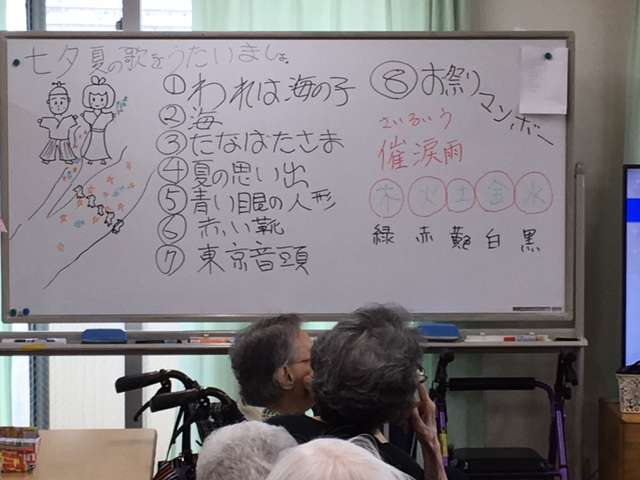 七夕 夏の歌をうたいましょ。
① われは海の子
② 海
③ たなばたさま
④ 夏の思い出
⑤ 青い眼の人形
⑥ 赤い靴
⑦ 東京音頭
⑧ お祭り
マンボー
さいるいう
催涙雨
木 火 土 金 水
緑 赤 白 黒